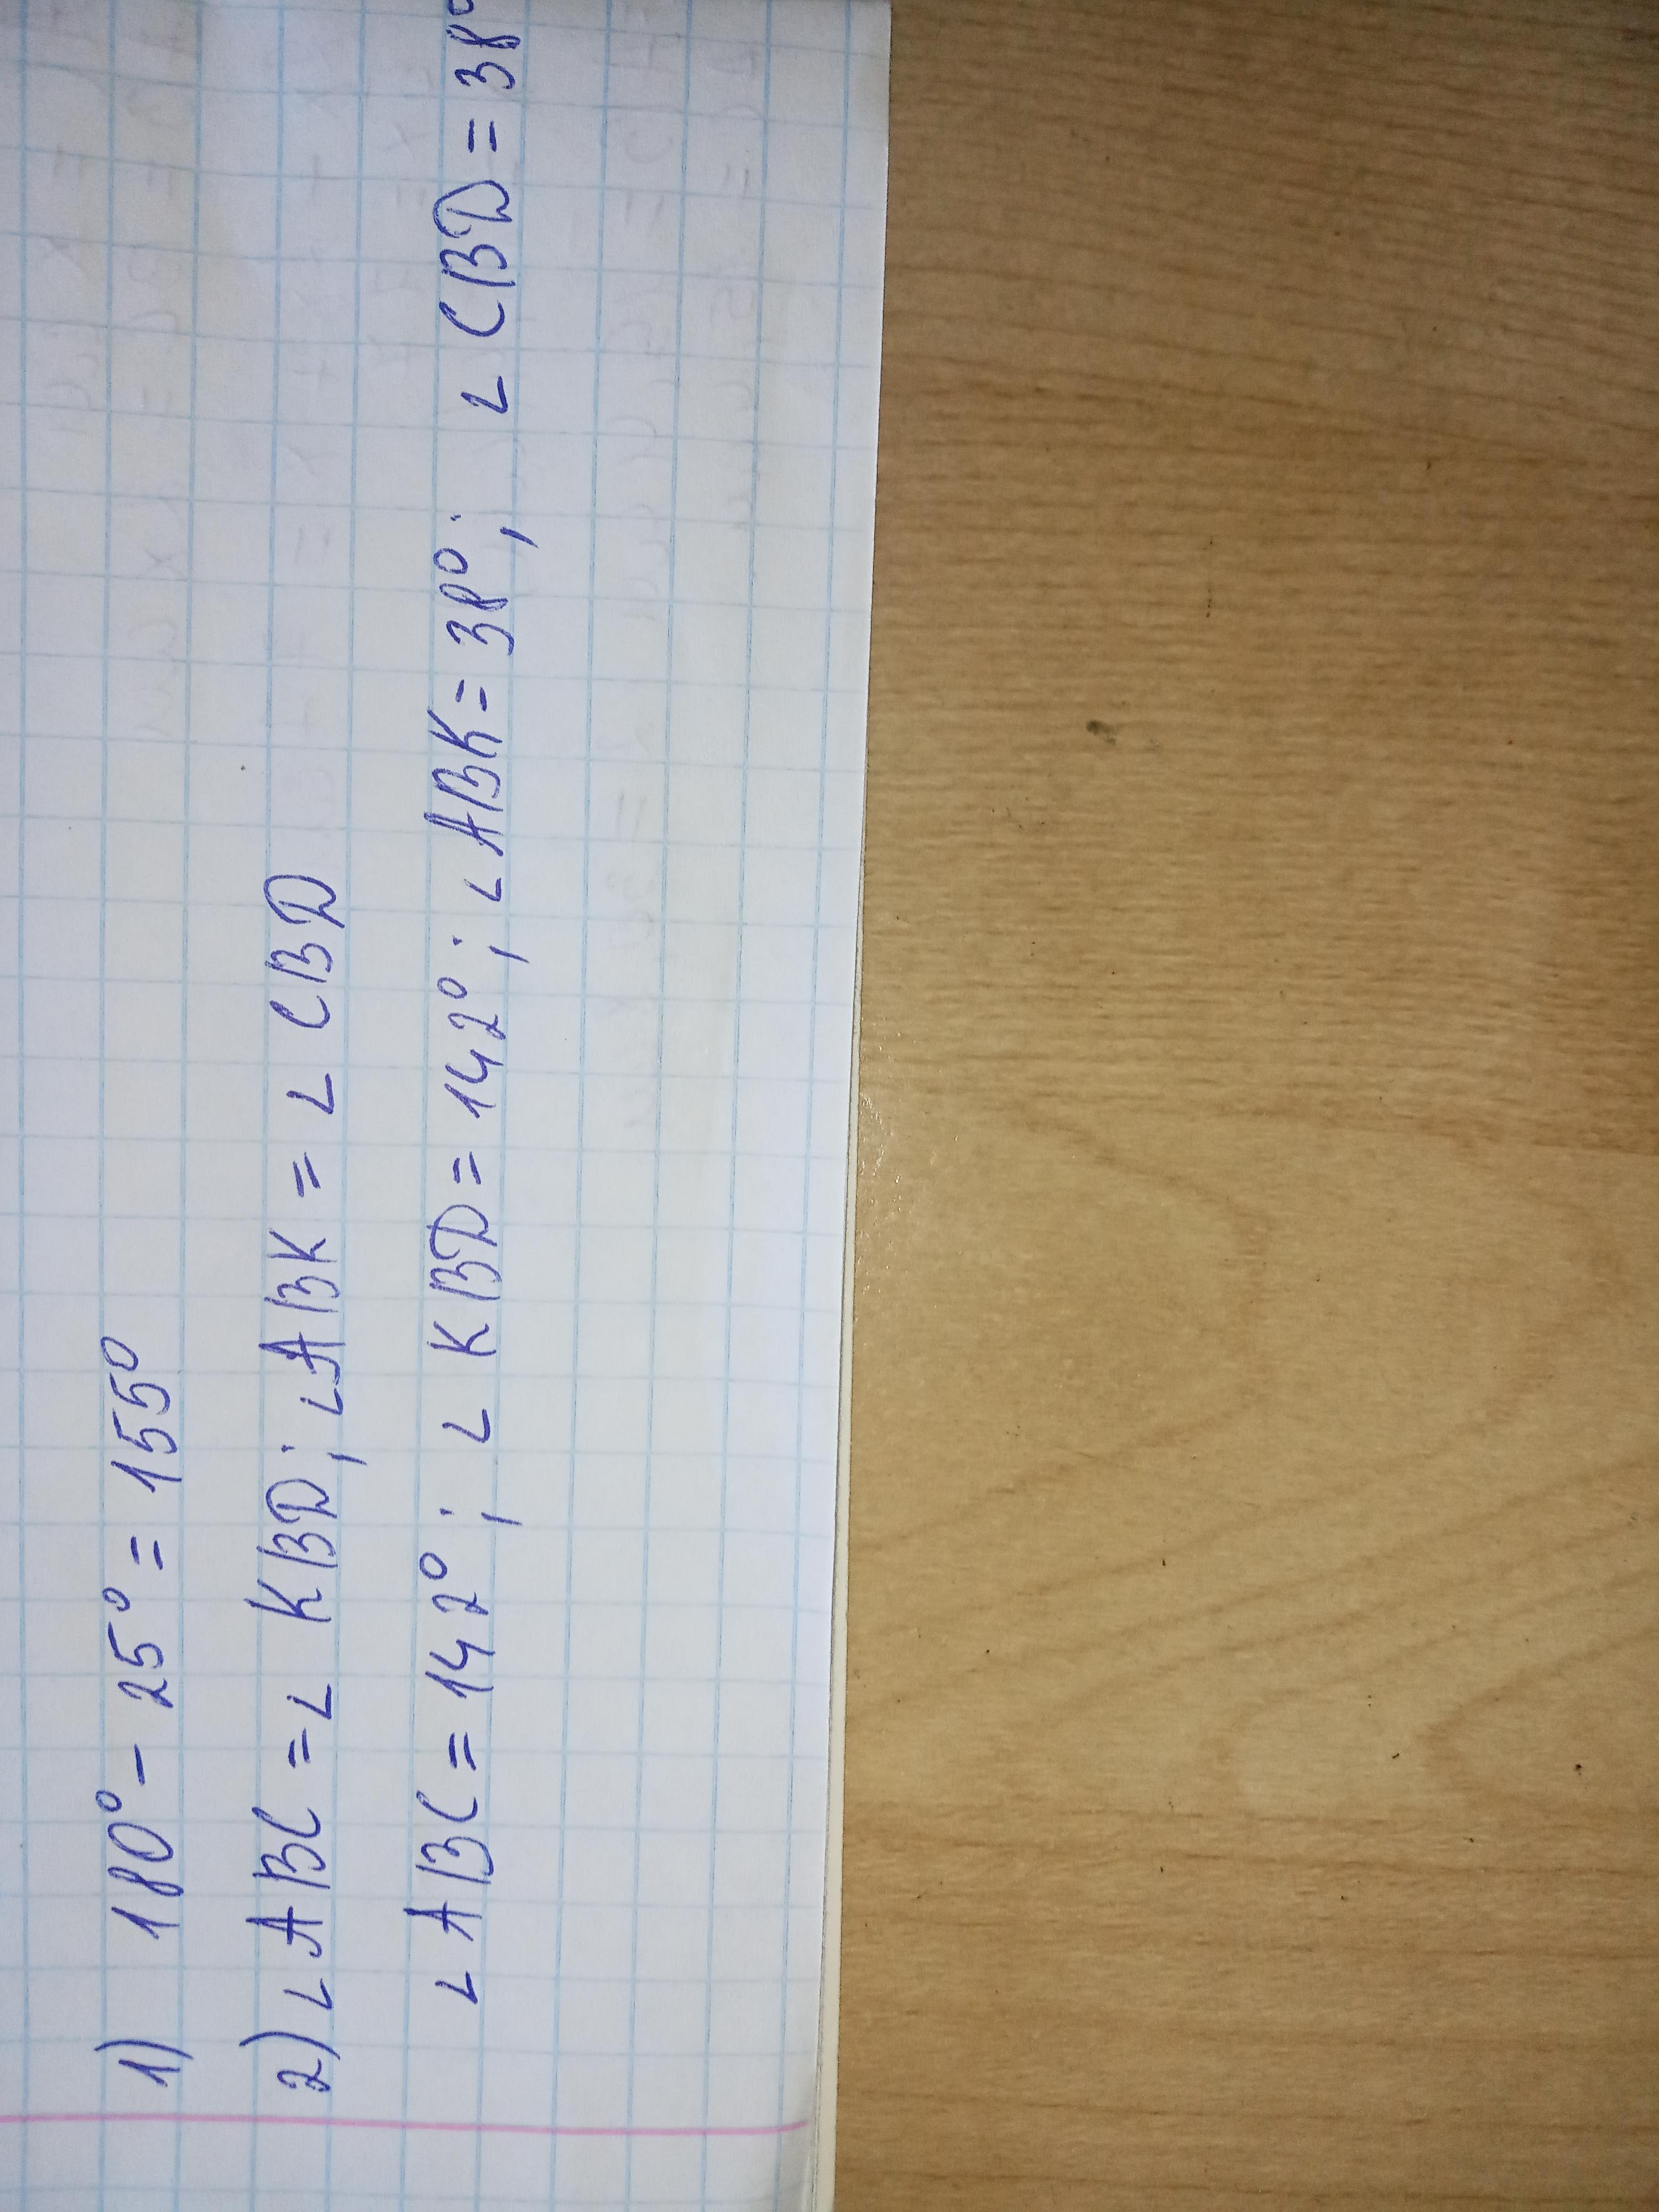 1) 180° - 25° = 155°
2) ∠ABC = ∠KBD; ∠ABK = ∠CBD
∠ABC = 142°; ∠KBD = 142°; ∠ABK = 38°; ∠CBD = 38°